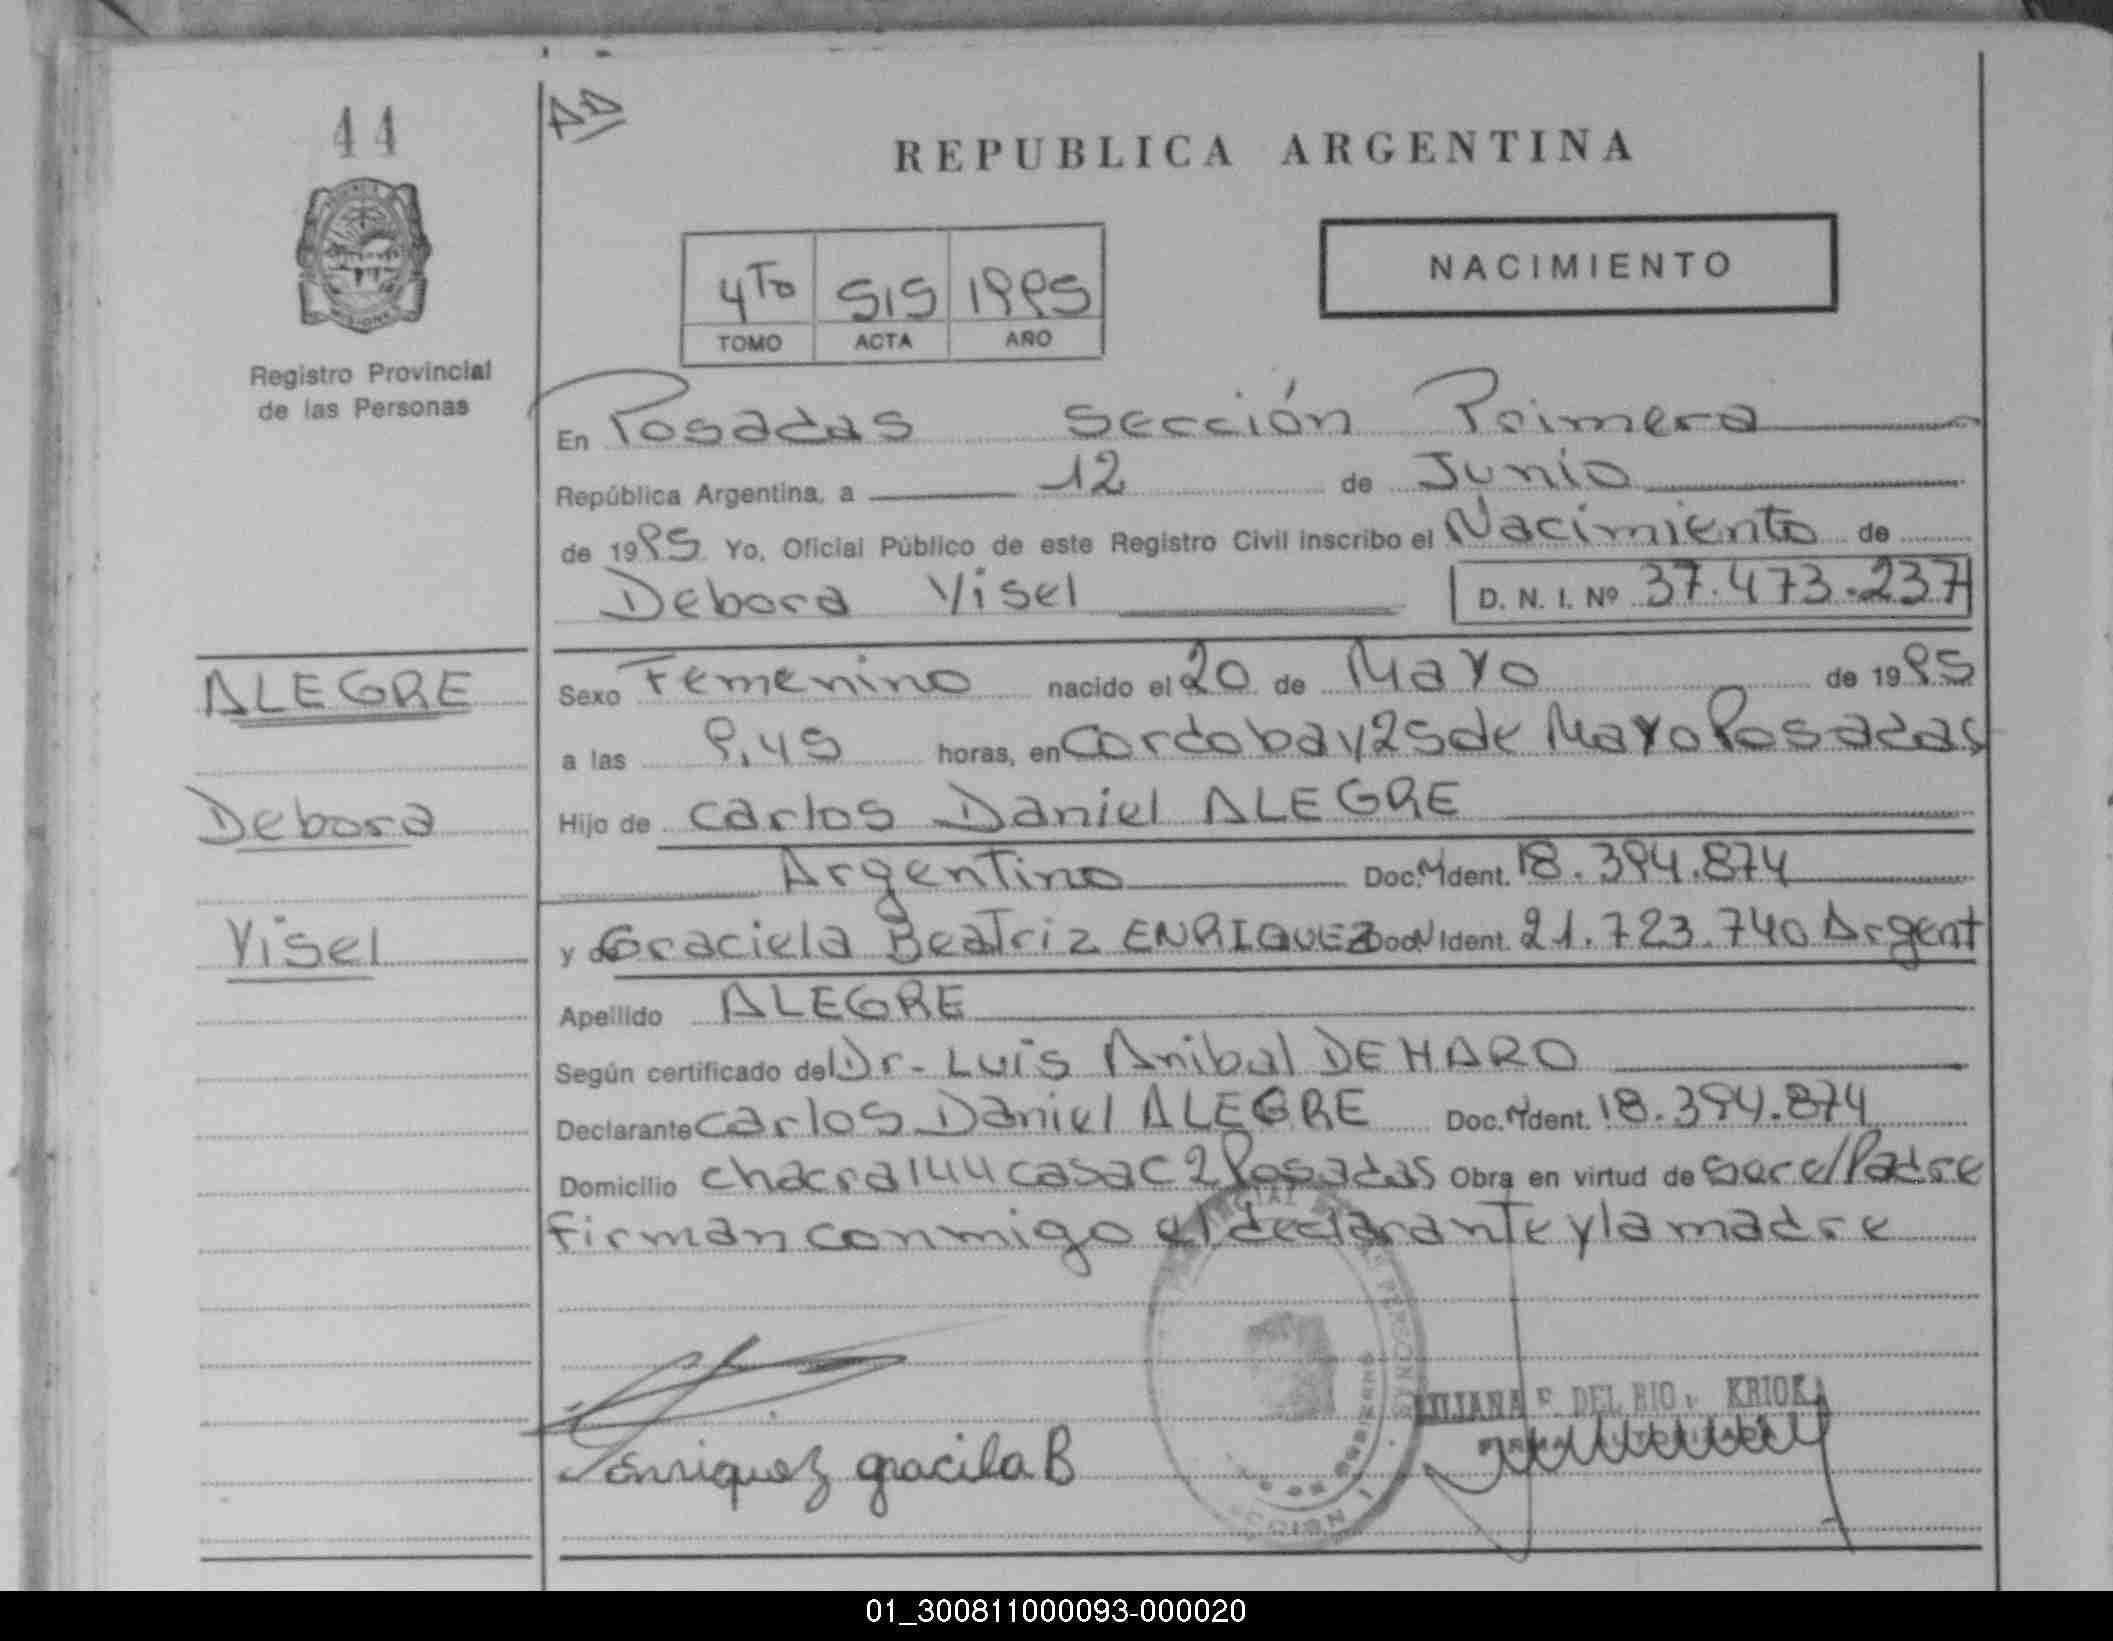 44
AD
REPUBLICA ARGENTINA
4To 515 1995
TOMO ACTA AÑO
NACIMIENTO
Registro Provincial
de las Personas
En Posadas Sección Primera
República Argentina, a 12 de Junio
de 1995 Yo, Oficial Público de este Registro Civil inscribo el Nacimiento de
Debora Yisel D. N. I. Nº 37.473.237
ALEGRE
Debora
Yisel
Sexo Femenino nacido el 20 de Mayo de 1995
a las 9,45 horas, en Cordoba y 25 de Mayo Posadas
Hijo de Carlos Daniel ALEGRE
Argentino Doc. Ident. 18.394.874
y de Graciela Beatriz ENRIQUEZ Doc Ident. 21.723.740 Argent
Apellido ALEGRE
Según certificado del Dr. Luis Anibal DE HARO
Declarante Carlos Daniel ALEGRE Doc. Ident. 18.394.874
Domicilio chacra 144 casa C 2 Posadas Obra en virtud de ser el Padre
firman conmigo el declarante y la madre
Enriquez gracila B
DEL RIO KRIOKA
01_300811000093-000020